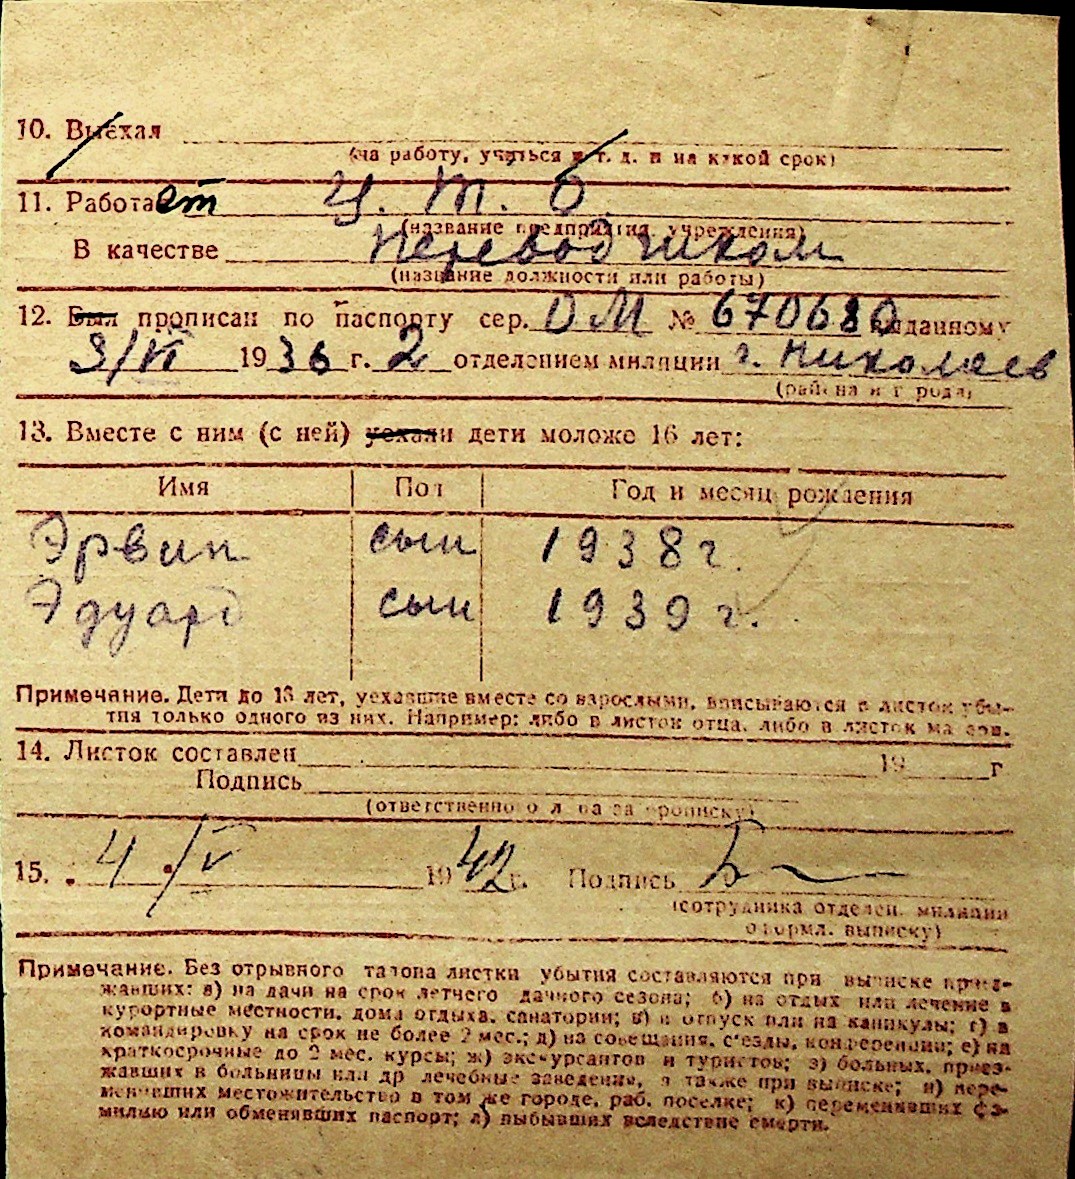 10. Выехал
(на работу, учиться и т. д. и на какой срок)
11. Работает Ц. Т. О.
(название предприятия, учреждения)
В качестве переводчиком
(название должности или работы)
12. Был прописан по паспорту сер. ОМ № 670680 выданному
3/VI 1936 г. 2 отделением милиции г. Николаев
(района и города)
13. Вместе с ним (с ней) уехали дети моложе 16 лет:
Имя Пол Год и месяц рождения
Эрвин сын 1938 г.
Эдуард сын 1939 г.
Примечание. Дети до 16 лет, уехавшие вместе со взрослыми, вписываются в листок убы-
тия только одного из них. Например: либо в листок отца, либо в листок матери.
14. Листок составлен 19 г
Подпись
(ответственного лица за прописку)
15. 4/V 1942 г. Подпись
(сотрудника отделен. милиции
оформл. выписку)
Примечание. Без отрывного талона листки убытия составляются при выписке приез-
жавших: а) на дачи на срок летнего дачного сезона; б) на отдых или лечение в
курортные местности, дома отдыха, санатории; в) в отпуск или на каникулы; г) в
командировку на срок не более 2 мес.; д) на совещания, с'езды, конференции; е) на
краткосрочные до 2 мес. курсы; ж) экскурсантов и туристов; з) больных, приез-
жавших в больницы или др лечебные заведения, а также при выписке; и) пере-
менивших местожительство в том же городе, раб. поселке; к) переменивших фа-
милию или обменявших паспорт; л) выбывших вследствие смерти.